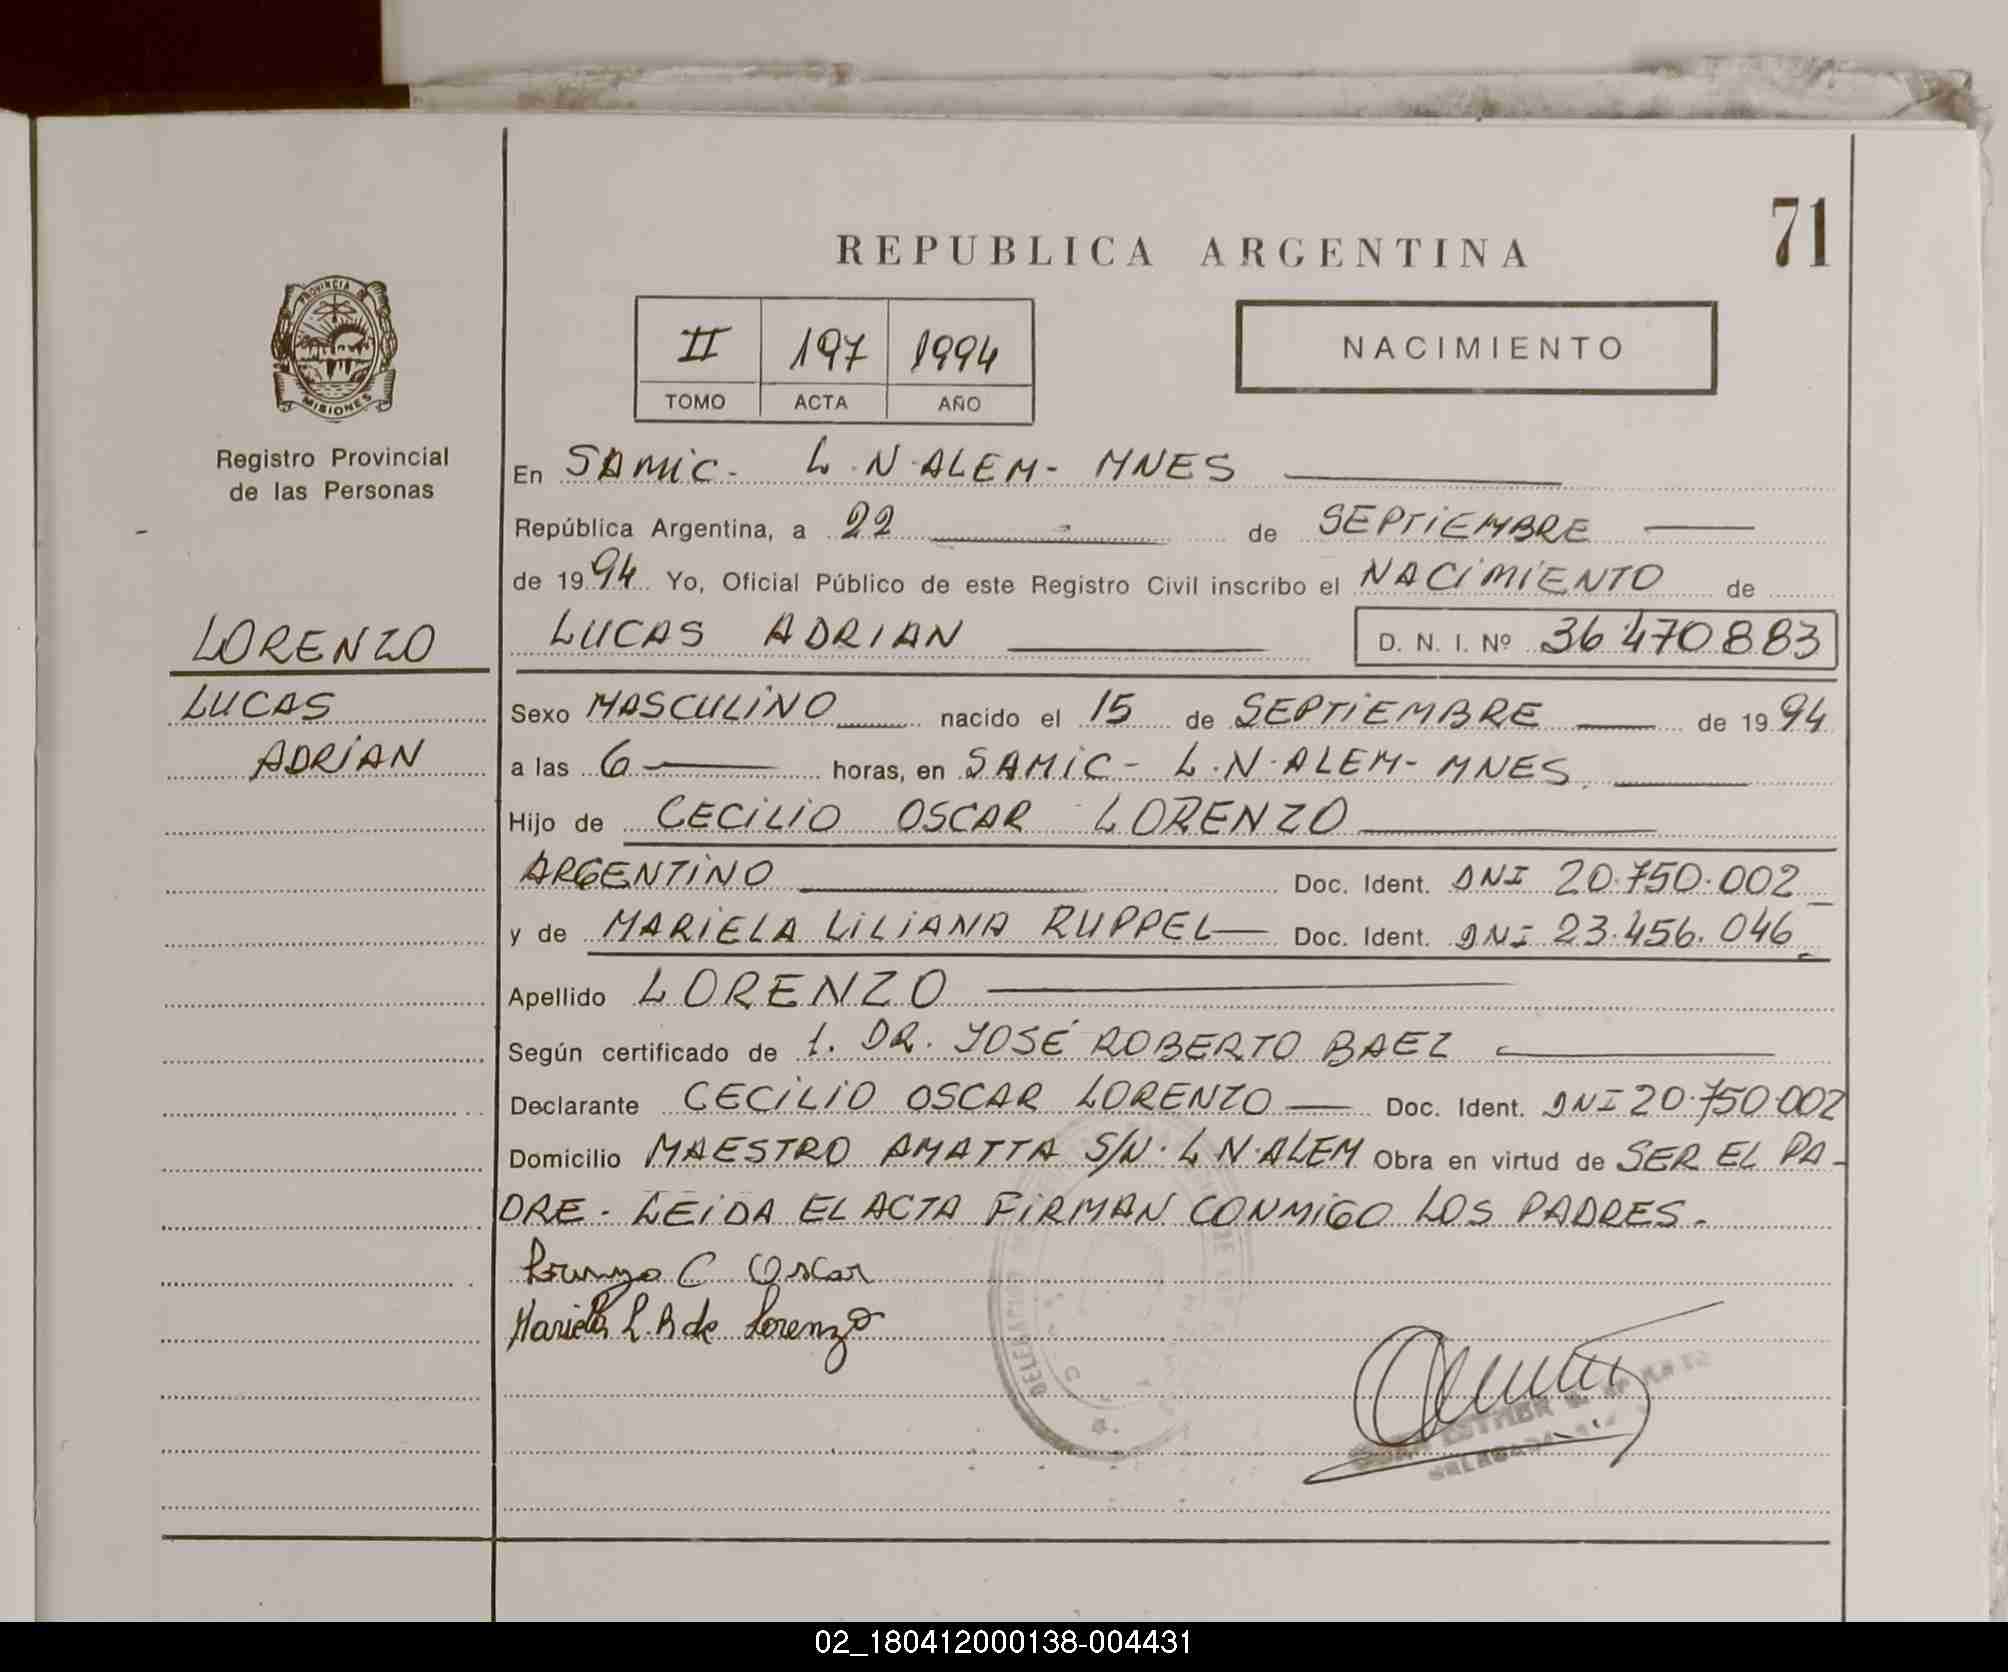 71
REPUBLICA ARGENTINA
PROVINCIA DE
MISIONES
Registro Provincial
de las Personas
II 197 1994
TOMO ACTA AÑO
NACIMIENTO
En SAMIC- L.N.ALEM- MNES
República Argentina, a 22 de SEPTIEMBRE
de 1994 Yo, Oficial Público de este Registro Civil inscribo el NACIMIENTO de
LORENZO
LUCAS ADRIAN D. N. I. Nº 36.470.883
LUCAS
Sexo MASCULINO nacido el 15 de SEPTIEMBRE de 1994
ADRIAN
a las 6 horas, en SAMIC- L.N.ALEM- MNES.
Hijo de CECILIO OSCAR LORENZO
ARGENTINO Doc. Ident. DNI 20.750.002
y de MARIELA LILIANA RUPPEL Doc. Ident. DNI 23.456.046
Apellido LORENZO
Según certificado de 1. DR. JOSÉ ROBERTO BAEZ
Declarante CECILIO OSCAR LORENZO Doc. Ident. DNI 20.750.002
Domicilio MAESTRO AMATTA S/N. L N.ALEM Obra en virtud de SER EL PA-
DRE. LEIDA EL ACTA FIRMAN CONMIGO LOS PADRES.
Lorenzo C Oscar
Mariela L. R de Lorenzo
ESTHER
02_180412000138-004431